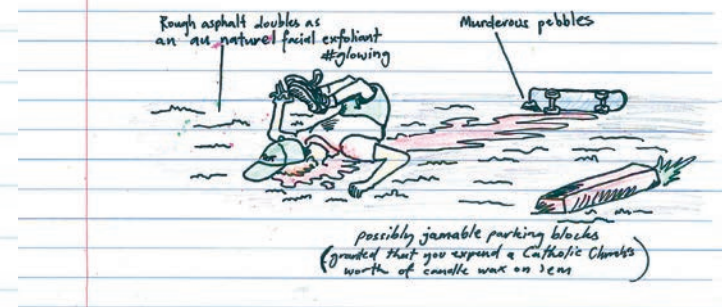 Rough asphalt doubles as
an au naturel facial exfoliant
#glowing
Murderous pebbles
possibly jamable parking blocks
(granted that you expend a Catholic Church's
worth of candle wax on 'em)